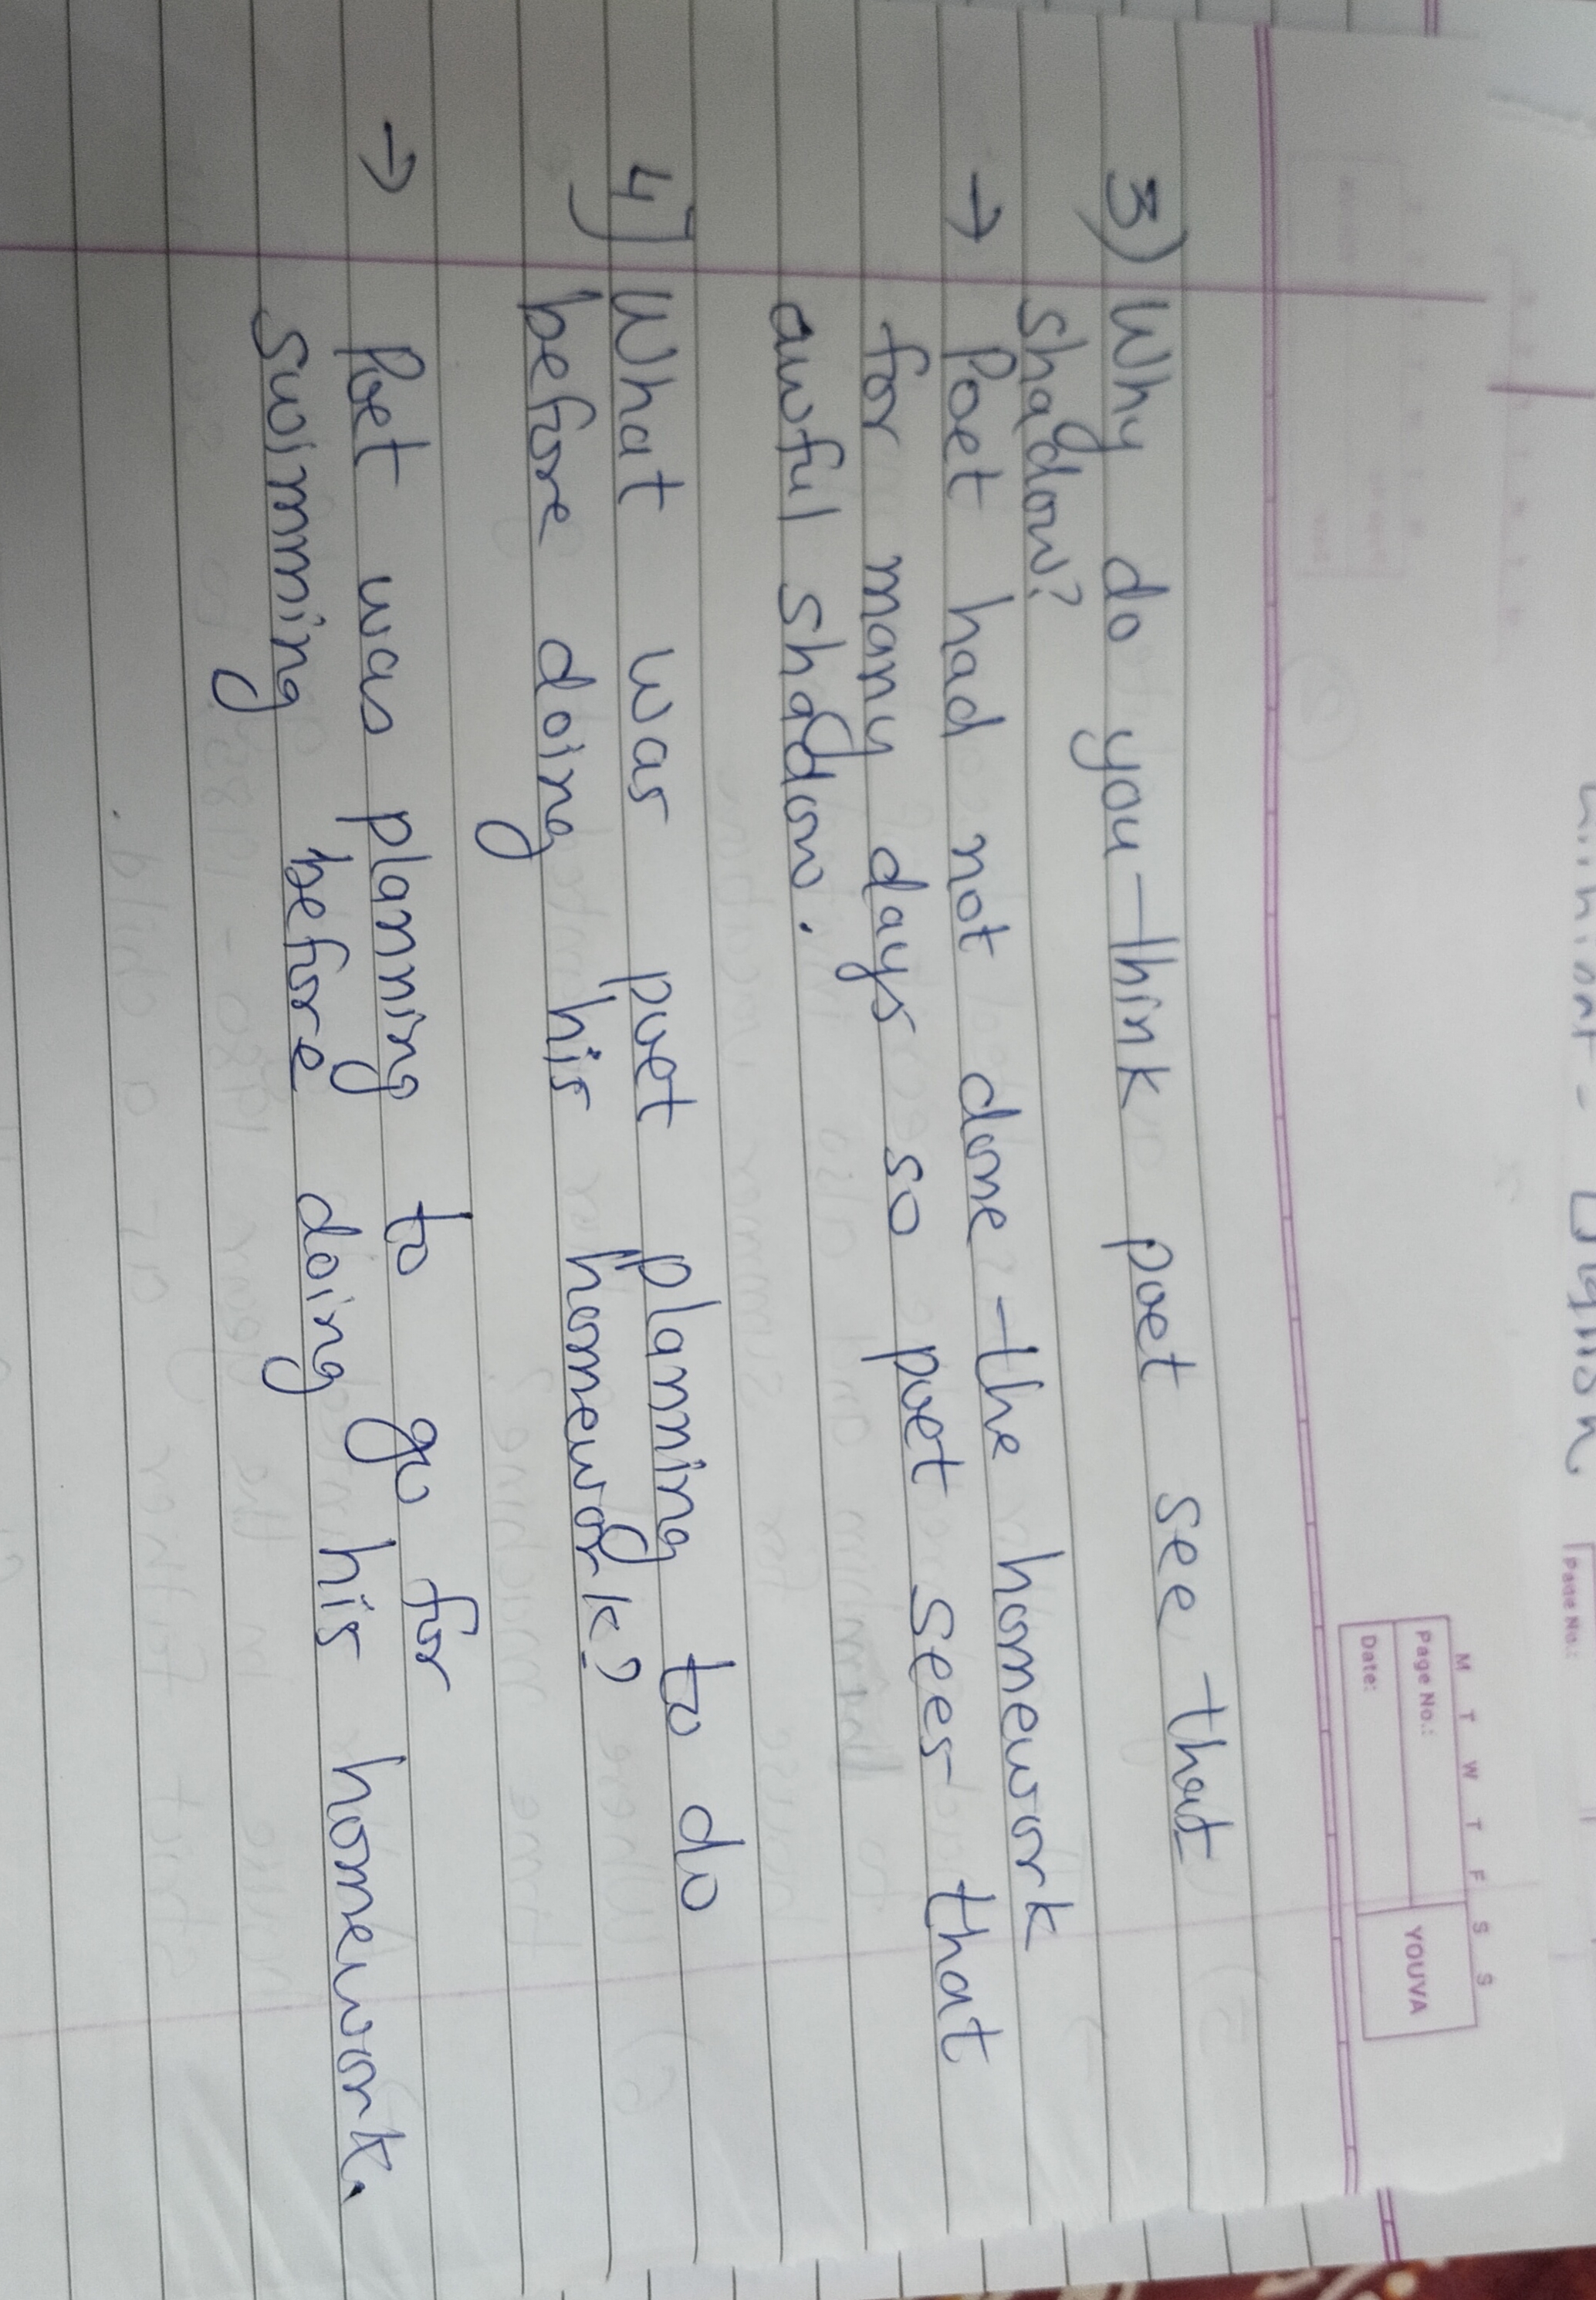 M T W T F S S
Page No.:
Date:
YOUVA
3) Why do you think poet see that
shadow?
→ Poet had not done the homework
for many days so poet sees that
awful shadow.
4) What was poet planning to do
before doing his homework?
→ Poet was planning to go for
swimming before doing his homework.